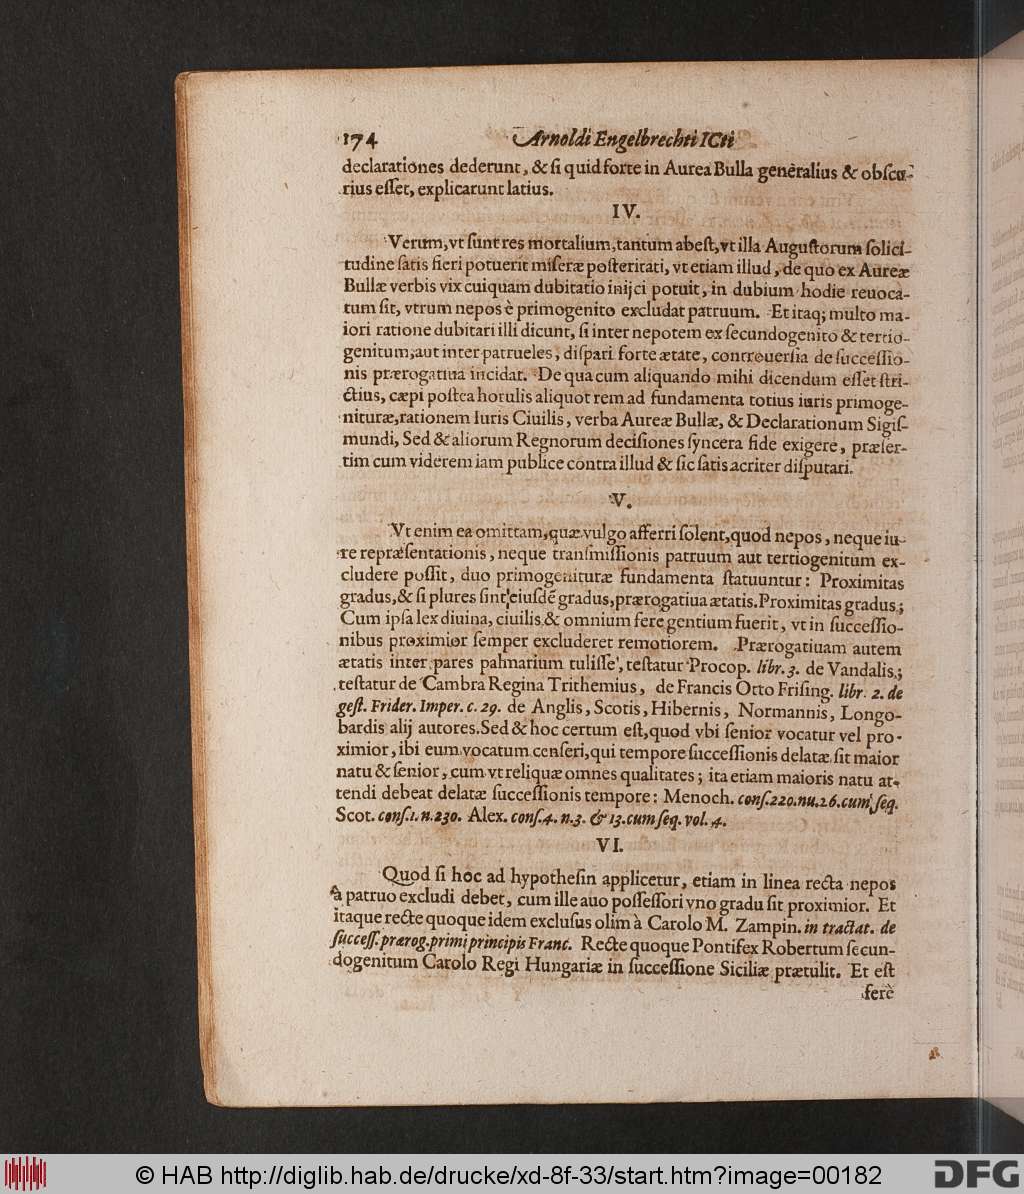 174 Arnoldi Engelbrechti ICti
declarationes dederunt, & ſi quid forte in Aurea Bulla generalius & obſcu-
rius eſſet, explicarunt latius.
IV.
Verum, vt ſunt res mortalium, tantum abeſt, vt illa Auguſtorum ſolici-
tudine ſatis fieri potuerit miſeræ poſteritati, vt etiam illud, de quo ex Aureæ
Bullæ verbis vix cuiquam dubitatio inijci potuit, in dubium hodie reuoca-
tum ſit, vtrum nepos è primogenito excludat patruum. Et itaq; multo ma-
iori ratione dubitari illi dicunt, ſi inter nepotem ex ſecundogenito & tertio-
genitum; aut inter patrueles, diſpari forte ætate, controuerſia de ſucceſſio-
nis prærogatiua incidat. De qua cum aliquando mihi dicendum eſſet ſtri-
ctius, cæpi poſtea horulis aliquot rem ad fundamenta totius iuris primoge-
nituræ, rationem Iuris Ciuilis, verba Aureæ Bullæ, & Declarationum Sigiſ-
mundi, Sed & aliorum Regnorum deciſiones ſyncera fide exigere, præſer-
tim cum viderem iam publice contra illud & ſic ſatis acriter diſputari.
V.
Vt enim ea omittam, quæ vulgo afferri ſolent, quod nepos, neque iu-
re repræſentationis, neque tranſmiſſionis patruum aut tertiogenitum ex-
cludere poſſit, duo primogenituræ fundamenta ſtatuuntur: Proximitas
gradus, & ſi plures ſint eiuſdē gradus, prærogatiua ætatis. Proximitas gradus;
Cum ipſa lex diuina, ciuilis & omnium fere gentium fuerit, vt in ſucceſſio-
nibus proximior ſemper excluderet remotiorem. Prærogatiuam autem
ætatis inter pares palmarium tuliſſe, teſtatur Procop. libr. 3. de Vandalis;
teſtatur de Cambra Regina Trithemius, de Francis Otto Friſing. libr. 2. de
geſt. Frider. Imper. c. 29. de Anglis, Scotis, Hibernis, Normannis, Longo-
bardis alij autores. Sed & hoc certum eſt, quod vbi ſenior vocatur vel pro-
ximior, ibi eum vocatum cenſeri, qui tempore ſucceſſionis delatæ ſit maior
natu & ſenior, cum vt reliquæ omnes qualitates; ita etiam maioris natu at-
tendi debeat delatæ ſucceſſionis tempore: Menoch. conſ. 220. nu. 26. cum ſeq.
Scot. conſ. 1. n. 230. Alex. conſ. 4. n. 3. & 13. cum ſeq. vol. 4.
VI.
Quod ſi hoc ad hypotheſin applicetur, etiam in linea recta nepos
à patruo excludi debet, cum ille auo poſſeſſori vno gradu ſit proximior. Et
itaque recte quoque idem excluſus olim à Carolo M. Zampin. in tractat. de
ſucceſſ. prærog. primi principis Franc. Recte quoque Pontifex Robertum ſecun-
dogenitum Carolo Regi Hungariæ in ſucceſſione Siciliæ prætulit. Et eſt
ferè
© HAB http://diglib.hab.de/drucke/xd-8f-33/start.htm?image=00182 DFG